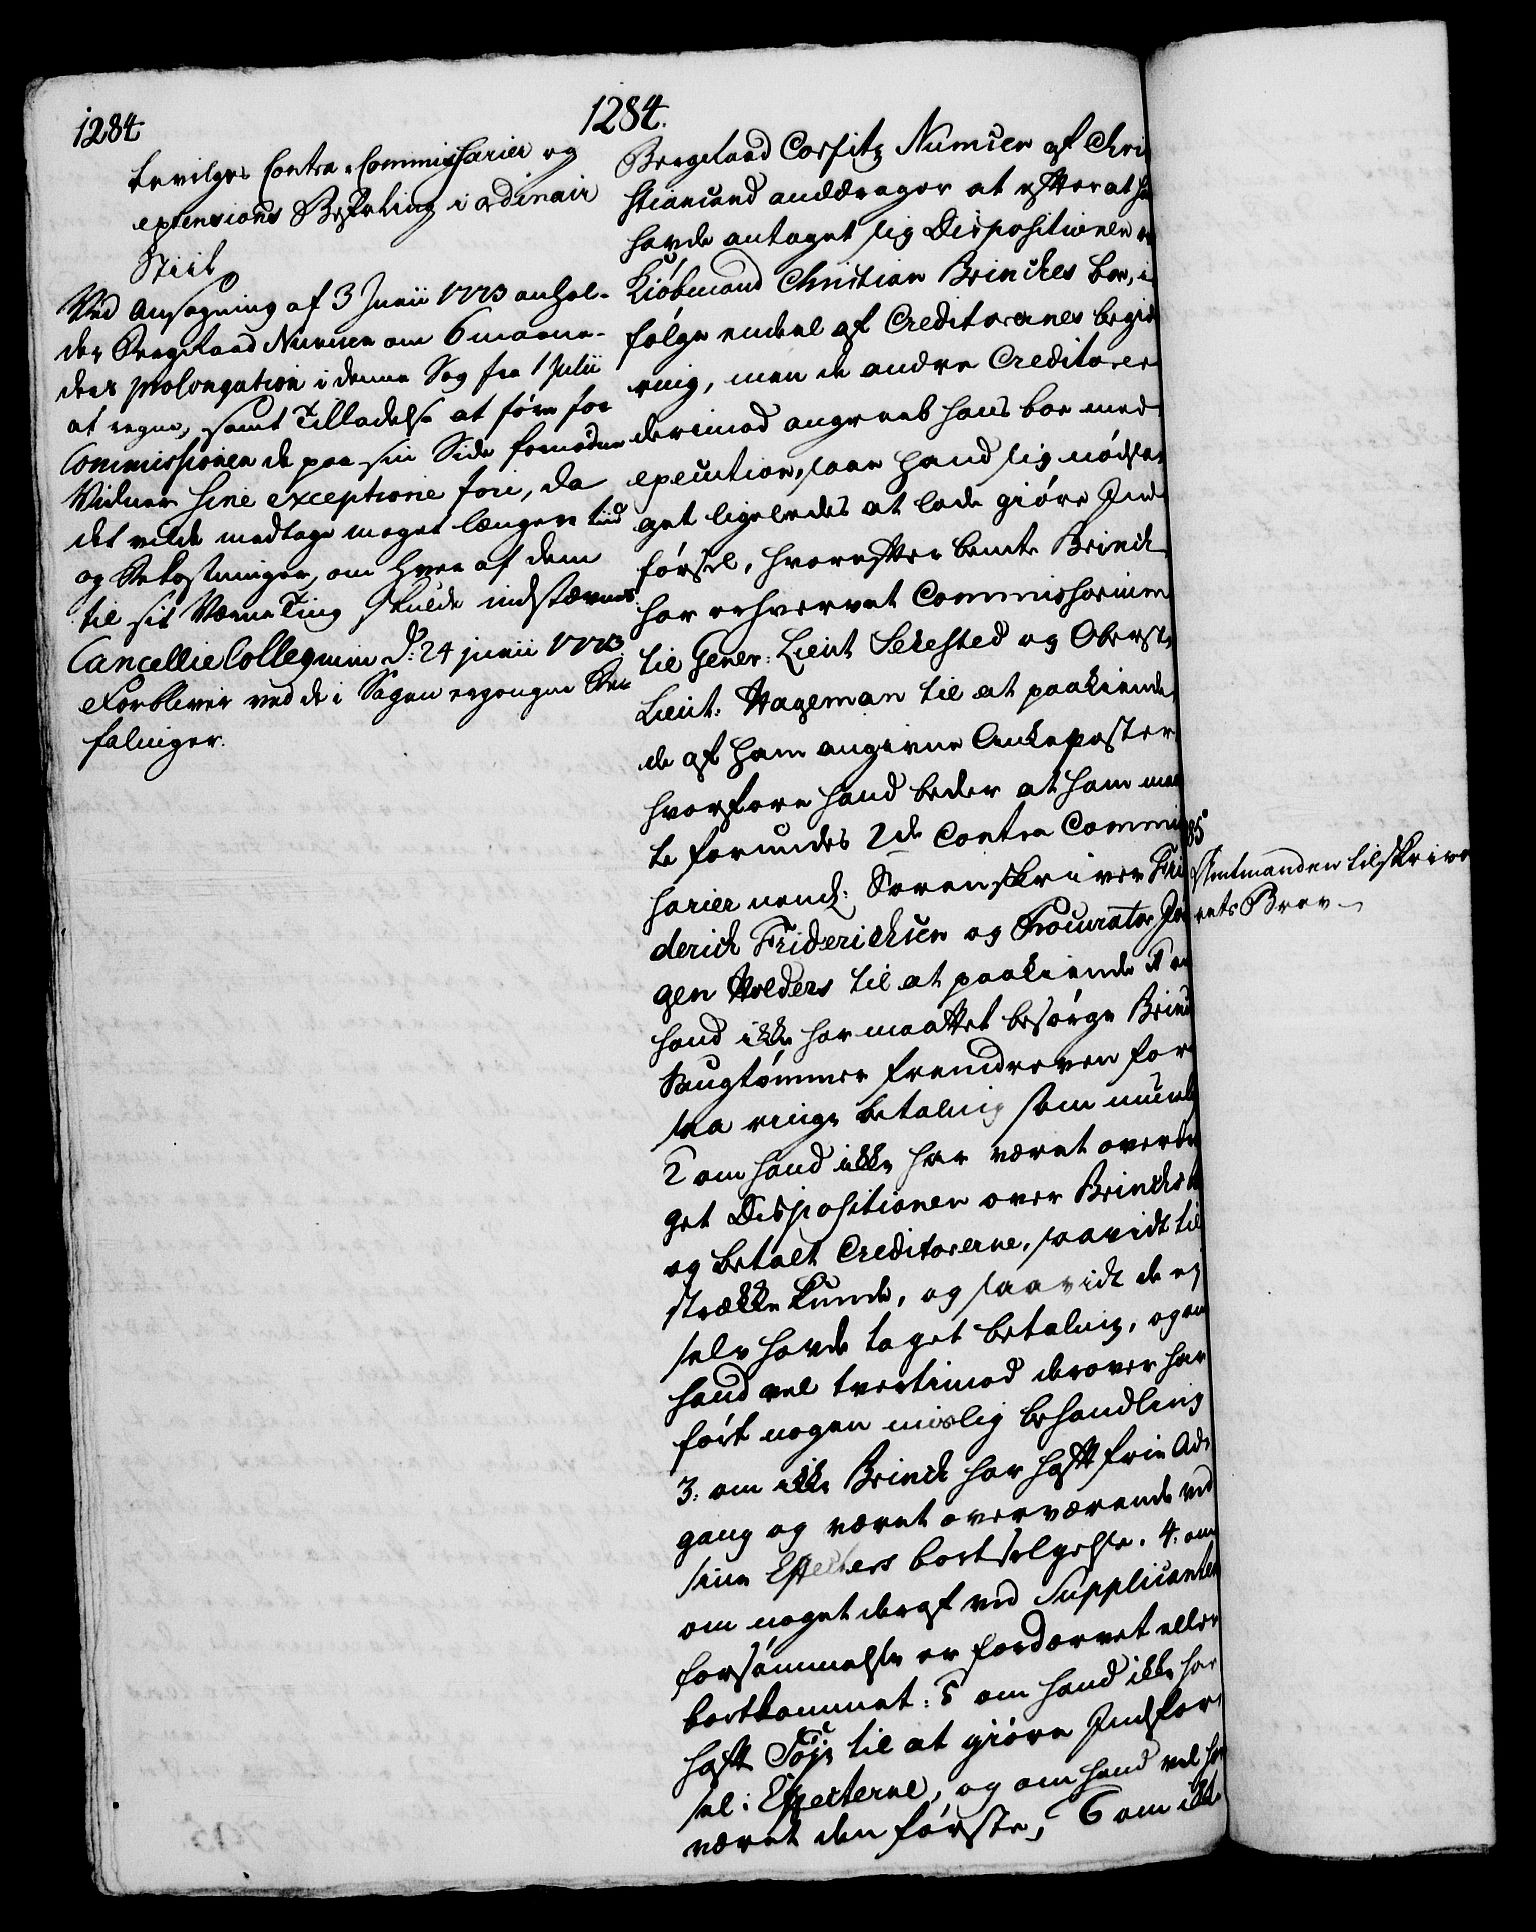 1284
1284.
bevilges Contra Commissarier og
extensions Befaling i ordinair
Stiil
Ved Ansøgning af 3 Junii 1773 anhol-
der Krigsraad Numsen om 6 maane-
ders prolongation i denne Sag fra 1 Julii
at regne, samt Tilladelse at føre for
Commissionen de paa sin Side fornødne
Vidner sine exceptione fori, da
det vilde medtage meget længere tiid
og Bekostninger, om hver af dem
til sit Værne Ting skulde indstævnes.
Cancellie Collegium d: 24 junii 1773.
Forbliver ved de i Sagen ergangne Be
falinger.
Krigsraad Corfitz Numsen af Chri
stiansund andrager at efter at ha
havde antaget sig Dispositionen
Kiøbmand Christian Brinckes boe, i
følge endeel af Creditorernes begie
ring, men de andre Creditorer
derimod angreeb hans boe med
execution, saae hand sig nødsa
get ligeledes at lade giøre Ind
førsel, hvorefter bemte Brinck
har erhvervet Commissorium
til Gener: Lieut Sehested og Oberst
Lieut: Hageman til at paakiende
de af ham angivne Ankeposter
hvorfore hand beder at ham maa
te forundes 2de Contra Commi
sarier nemlig: Sorenskriver Fri
derich Friderichsen og Procurator
gen Holders til at paakiende 1 om
hand ikke har maattet besørge Brinck
Saugtømmer fremdreven for
saa ringe betaling som muel
2 om hand ikke har været overdra
get Dispositionen over Brincks
og betalt Creditorerne, saavidt til
strække kunde, og saavidt de ej
selv havde taget betaling, og om
hand vel tvertimod derover har
ført nogen mislig behandling
3: om ikke Brinck har haft frie Ad
gang og været overværende ved
sine Effecters bortsælgelse. 4: om
om noget deraf ved Supplicanten
forsømmelse er fordærvet eller
bortkommet: 5 om hand ikke har
haft Føje til at giøre Indfør
sel i Effecterne, og om hand vel ha
været den første, 6 om ikke
85
Amtmanden tilskrive
rets Brev